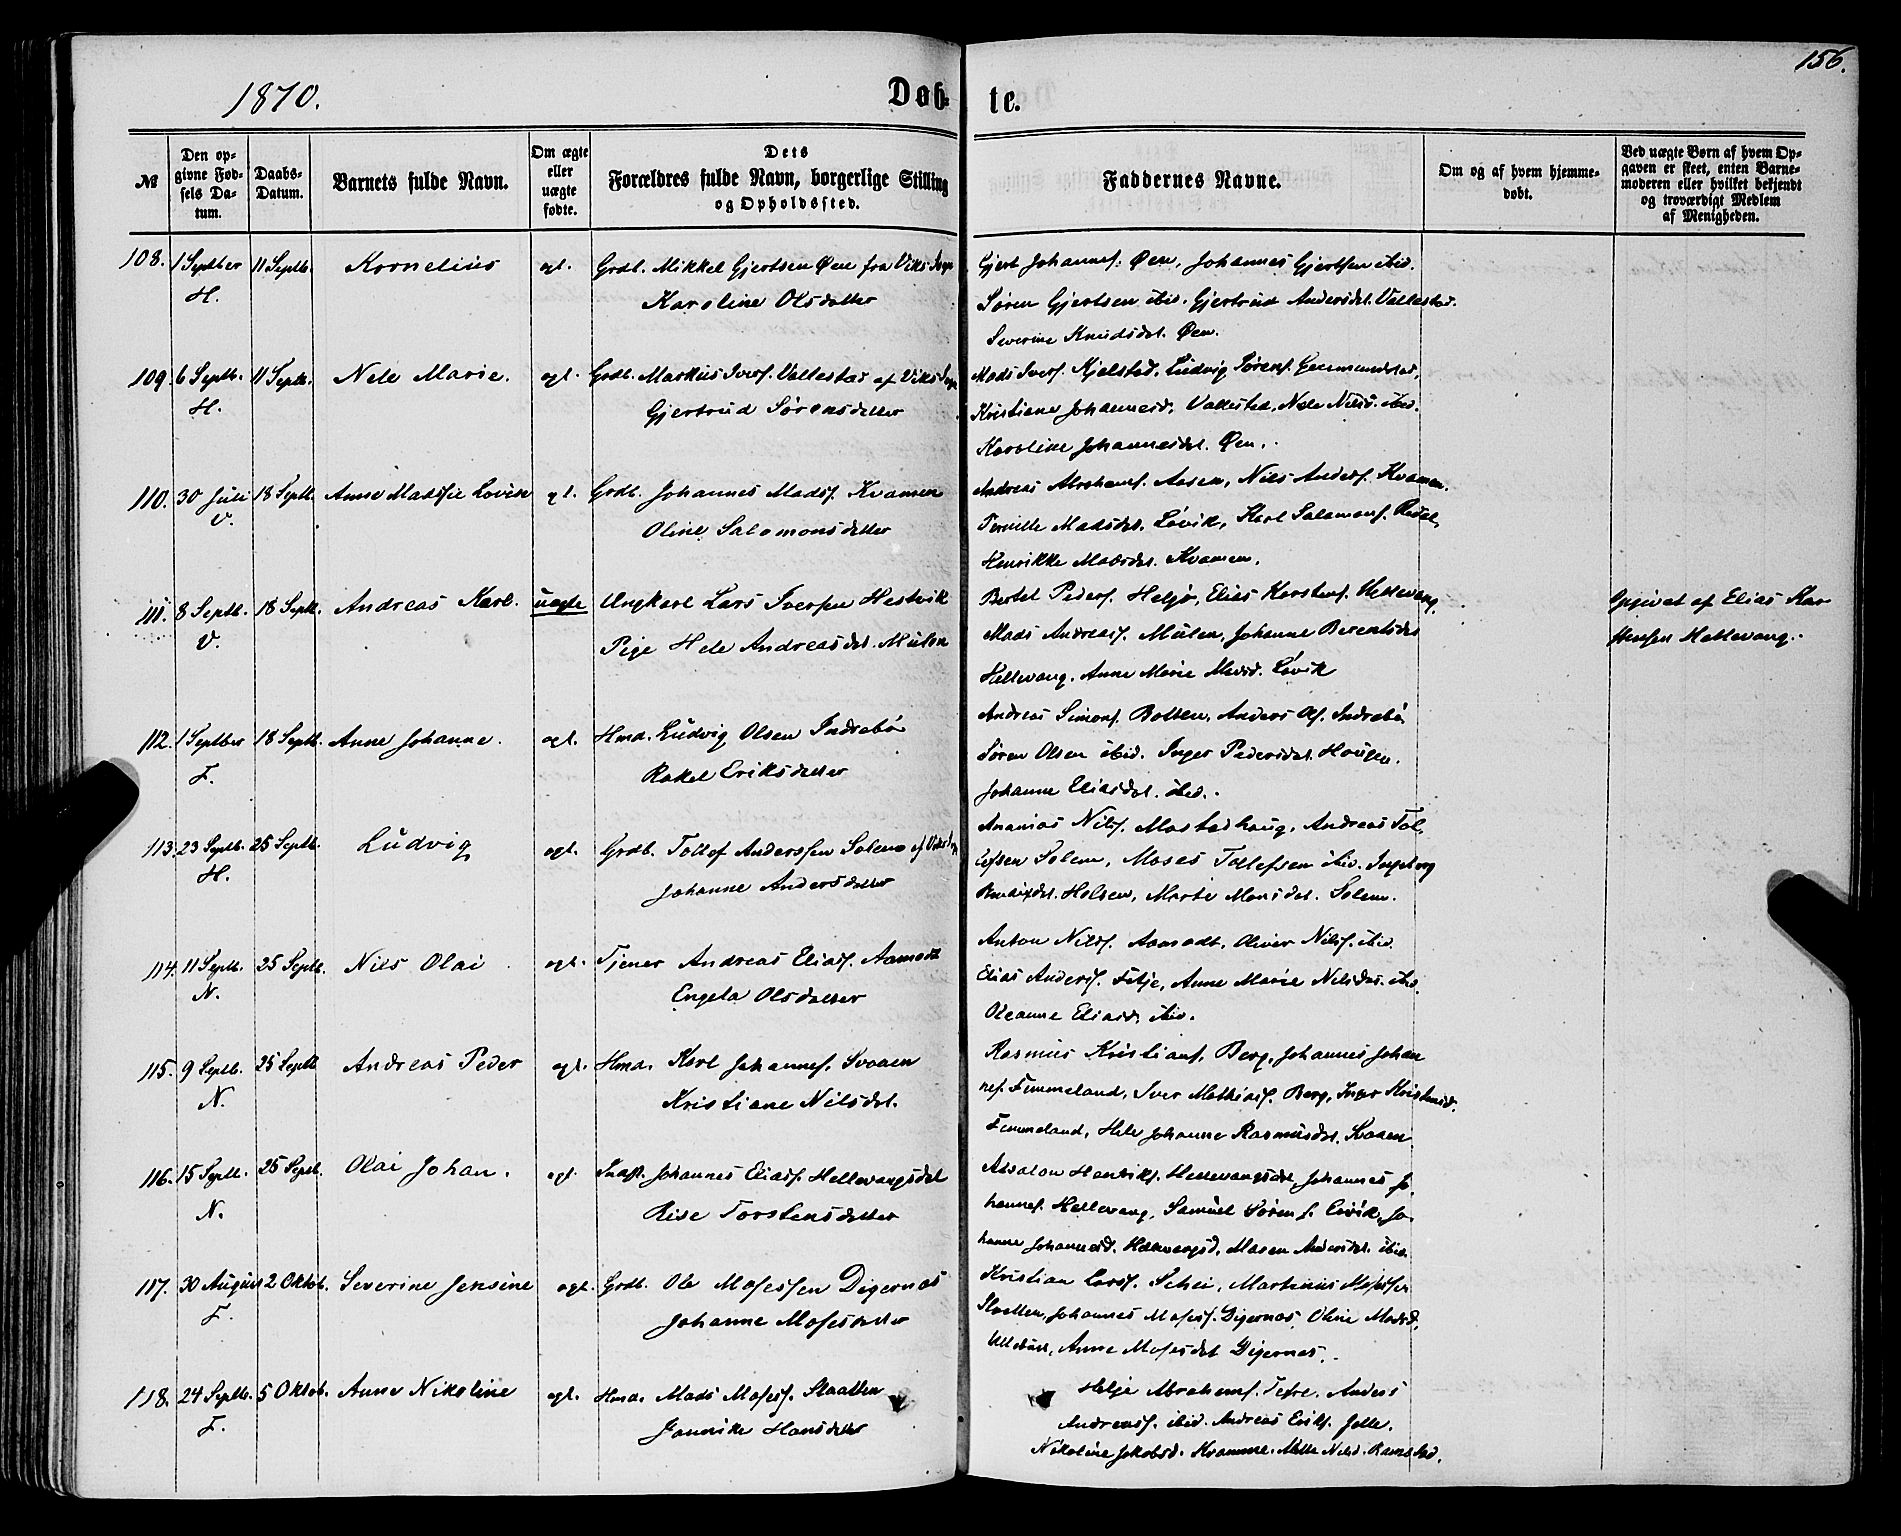 156.
1870.
Døb- te.
№
Den op-
givne Fød-
sels Da-
tum.
Daabs-
Datum.
Barnets fulde Navn.
Om ægte
eller
uægte
fødte.
Dets
Forældres fulde Navn, borgerlige Stilling
og Opholdssted.
Faddernes Navne.
Om og af hvem hjemme-
døbt.
Ved uægte Børn af hvem Op-
gaven er skeet, enten Barne-
moderen eller hvilket bekjendt
og troværdigt Medlem
af Menigheden.
108. 1 Septber 11 Septb. Kornelius egt. Grdb. Mikkel Gjertsen Øen fra Viks Sogn
H. Karoline Olsdatter
Gjert Johannes. Øen, Johannes Gjertsen ibid.
Søren Gjertsen ibid. Gjertrud Andersdt. Vallestad.
Severine Knudsdt. Øen.
109. 6 Septb. 11 Septb. Nele Marie. egt. Grdb. Markus Ivers. Vallestad af Viks Sogn
H. Gjertrud Sørensdatter
Mads Ivers. Kjelstad, Ludvig Sørens. Geirmundstad,
Kristiane Johannesd. Vallestad, Nele Nilsd. ibid.
Karoline Johannesdt. Øen.
110. 30 Juli 18 Septb. Anne Madsine Lovise egt. Grdb. Johannes Mads. Kvamen
V. Oline Salomonsdatter
Andreas Abrahams. Aasen, Nils Anders. Kvamen.
Pernille Madsdt. Løvik, Karl Salamons. Redal,
Henrikke Madsdt. Kvamen.
111. 8 Septb. 18 Septb. Andreas Karl. uægte Ungkarl Lars Iversen Hestvik
V. Pige Hele Andreasdt. Mulen
Bertel Peders. Heljø, Elias Karstens. Hellevang,
Mads Andreass. Mulen, Johanne Berentsdt.
Hellevang. Anne Marie Madsd. Løvik
Opgivet af Elias Kar-
stensen Hellevang.
112. 1 Septber 18 Septb. Anne Johanne. egt. Hmd. Ludvig Olsen Indrebø
F. Rakel Eriksdatter
Andreas Simons. Botten, Anders Ols. Indrebø
Søren Olsen ibid. Inger Pedersdt. Hougen.
Johanne Eliasdt. ibid.
113. 23 Septb. 25 Septb. Ludvig egt. Grdb. Tollef Anderssen Solem af Viks Sogn
H. Johanne Andersdatter
Ananias Nils. Mostadhaug, Andreas Tol-
lefsen Solem, Moses Tollefsen ibid. Ingeborg
Bendixdt. Holsen, Marte Monsdt. Solem.
114. 11 Septb. 25 Septb. Nils Olai egt. Tjener Andreas Elias. Aamodt
N. Engela Olsdatter
Anton Nils. Aamodt, Oliver Nils. ibid.
Elias Anders. Fitje, Anne Marie Nilsdt. ibid.
Oleanne Eliasd. ibid.
115. 9 Septb. 25 Septb. Andreas Peder egt. Hmd. Karl Johannes. Svaaen
N. Kristiane Nilsdt.
Rasmus Kristians. Berg, Johannes Johan-
nes. Femmeland, Iver Mathias. Berg, Inger Kristensd.
Femmeland, Hele Johanne Rasmusdt. Svaaen
116. 15 Septb. 25 Septb. Olai Johan. egt. Johannes Elias. Hellevangsdal
N. Rise Torstensdatter
Absalon Henriks. Hellevangsdal, Johannes Jo-
hannes. Hellevang, Samuel Sørens. Eivik, Jo-
hanne Johannesd. Hellevangsd. Maren Andersdt. ibid.
117. 30 August 2 Oktob. Severine Jensine egt. Grdb. Ole Mosessen Digernes
F. Johanne Mosesdatter
Kristian Lars. Schei, Martinus Mosessen
Slaatten, Johannes Moses. Digernes, Oline Madsd.
Anne Mosesdt. Digernes.
118. 24 Septb. 5 Oktob. Anne Nikoline egt. Hmd. Mads Moses. Slaatten
F. Jannike Hansdatter
Helje Abrahams. Tefre. Anders
Andreass. ibid. Andreas Eriks. Jelle.
Nikoline Jakobsd. Kvamme. Mette Nilsd. Ramstad.